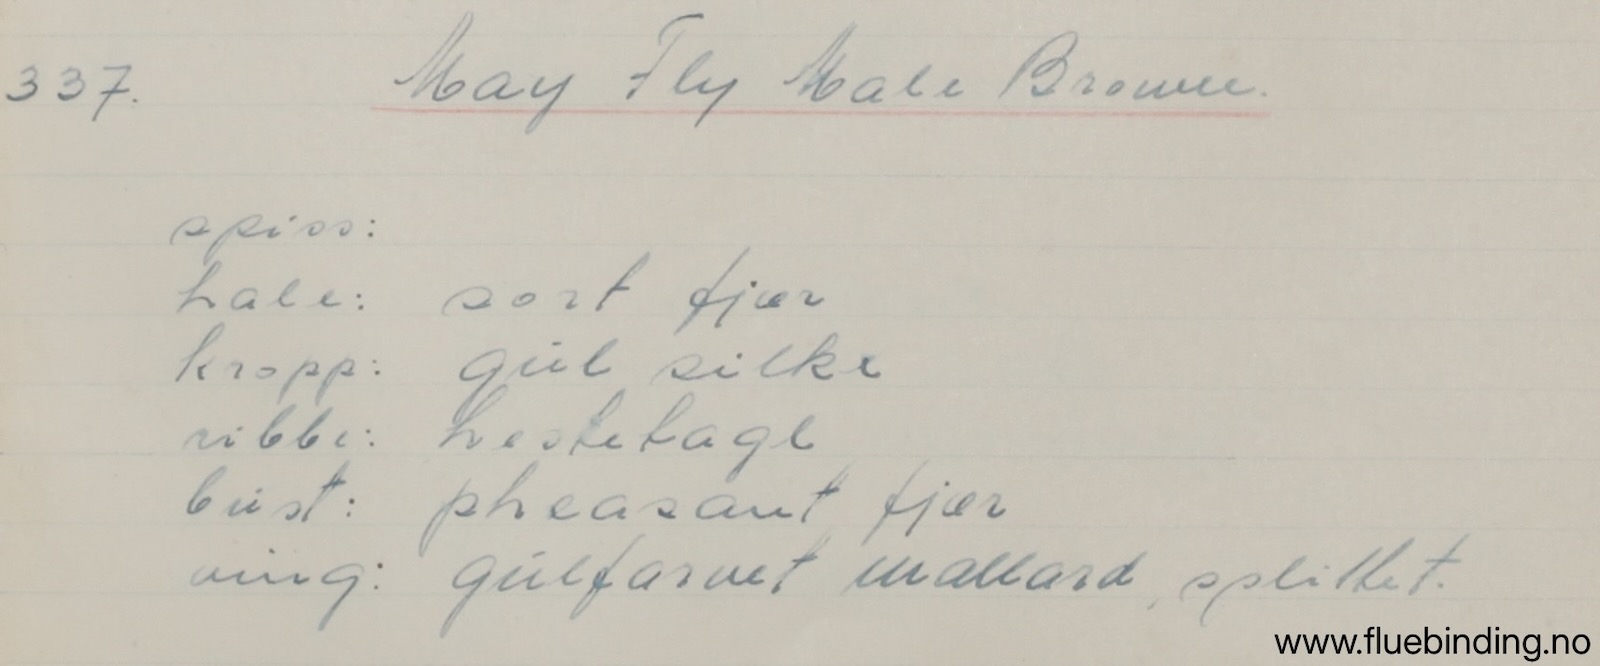 337. May Fly Male Brown.
spiss:
hale: sort fjær
kropp: gul silke
ribbe: hestetagl
bust: pheasant fjær
ving: gulfarvet mallard, splittet.
www.fluebinding.no